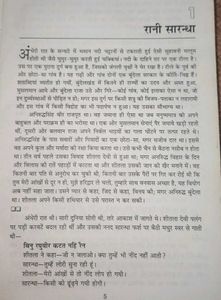 1
रानी सारन्धा
अँधेरी रात के सन्नाटे में धसान नदी चट्टानों से टकराती हुई ऐसी सुहावनी मालूम
होती थी जैसे घुमुर-घुमुर करती हुई चक्कियाँ। नदी के दाहिने तट पर एक टीला है।
उस पर एक पुराना दुर्ग बना हुआ है, जिसको जंगली वृक्षों ने घेर रखा है। टीले के पूर्व की
ओर छोटा-सा गाँव है। यह गढ़ी और गाँव दोनों एक बुंदेला सरकार के कीर्ति-चिह्न हैं।
शताब्दियाँ व्यतीत हो गयीं, बुंदेलखंड में कितने ही राज्यों का उदय और अस्त हुआ,
मुसलमान आये और बुंदेला राजा उठे और गिरे—कोई गाँव, कोई इलाका ऐसा न था, जो
इन दुर्व्यवस्थाओं से पीड़ित न हो; मगर इस दुर्ग पर किसी शत्रु की विजय-पताका न लहरायी
और इस गाँव में किसी विद्रोह का भी पदार्पण न हुआ। यह उसका सौभाग्य था।
अनिरुद्धसिंह वीर राजपूत था। वह जमाना ही ऐसा था जब मनुष्यमात्र को अपने
बाहुबल और पराक्रम ही का भरोसा था। एक ओर मुसलमान सेनाएं पैर जमाये खड़ी रहती
थीं, दूसरी ओर बलवान राजा अपने निर्बल भाइयों का गला घोंटने पर तत्पर रहते थे।
अनिरुद्धसिंह के पास सवारों और पियादों का एक छोटा-सा, मगर सजीव दल था। इससे
वह अपने कुल और मर्यादा की रक्षा किया करता था। उसे कभी चैन से बैठना नसीब न होता
था। तीन वर्ष पहले उसका विवाह शीतला देवी से हुआ था; मगर अनिरुद्ध विहार के दिन
और विलास की रातें पहाड़ों में काटता था और शीतला उसकी जान की खैर मनाने में। वह
कितनी बार पति से अनुरोध कर चुकी थी, कितनी बार उसके पैरों पर गिर कर रोई थी कि
तुम मेरी आँखों से दूर न हो, मुझे हरिद्वार ले चलो, तुम्हारे साथ वनवास अच्छा है, यह वियोग
अब नहीं सहा जाता। उसने प्यार से कहा, जिद से कहा, विनय की; मगर अनिरुद्ध बुंदेला
था। शीतला अपने किसी हथियार से उसे परास्त न कर सकी।
अँधेरी रात थी। सारी दुनिया सोती थी, तारे आकाश में जागते थे। शीतला देवी पलंग
पर पड़ी करवटें बदल रही थीं और उसकी ननद सारन्धा फर्श पर बैठी मधुर स्वर से गाती
थी—
बिनु रघुवीर कटत नहिं रैन
शीतला ने कहा—जी न जलाओ। क्या तुम्हें भी नींद नहीं आती ?
सारन्धा—तुम्हें लोरी सुना रही हूँ।
शीतला—मेरी आँखों से तो नींद लोप हो गयी।
सारन्धा—किसी को ढूँढ़ने गयी होगी।
5